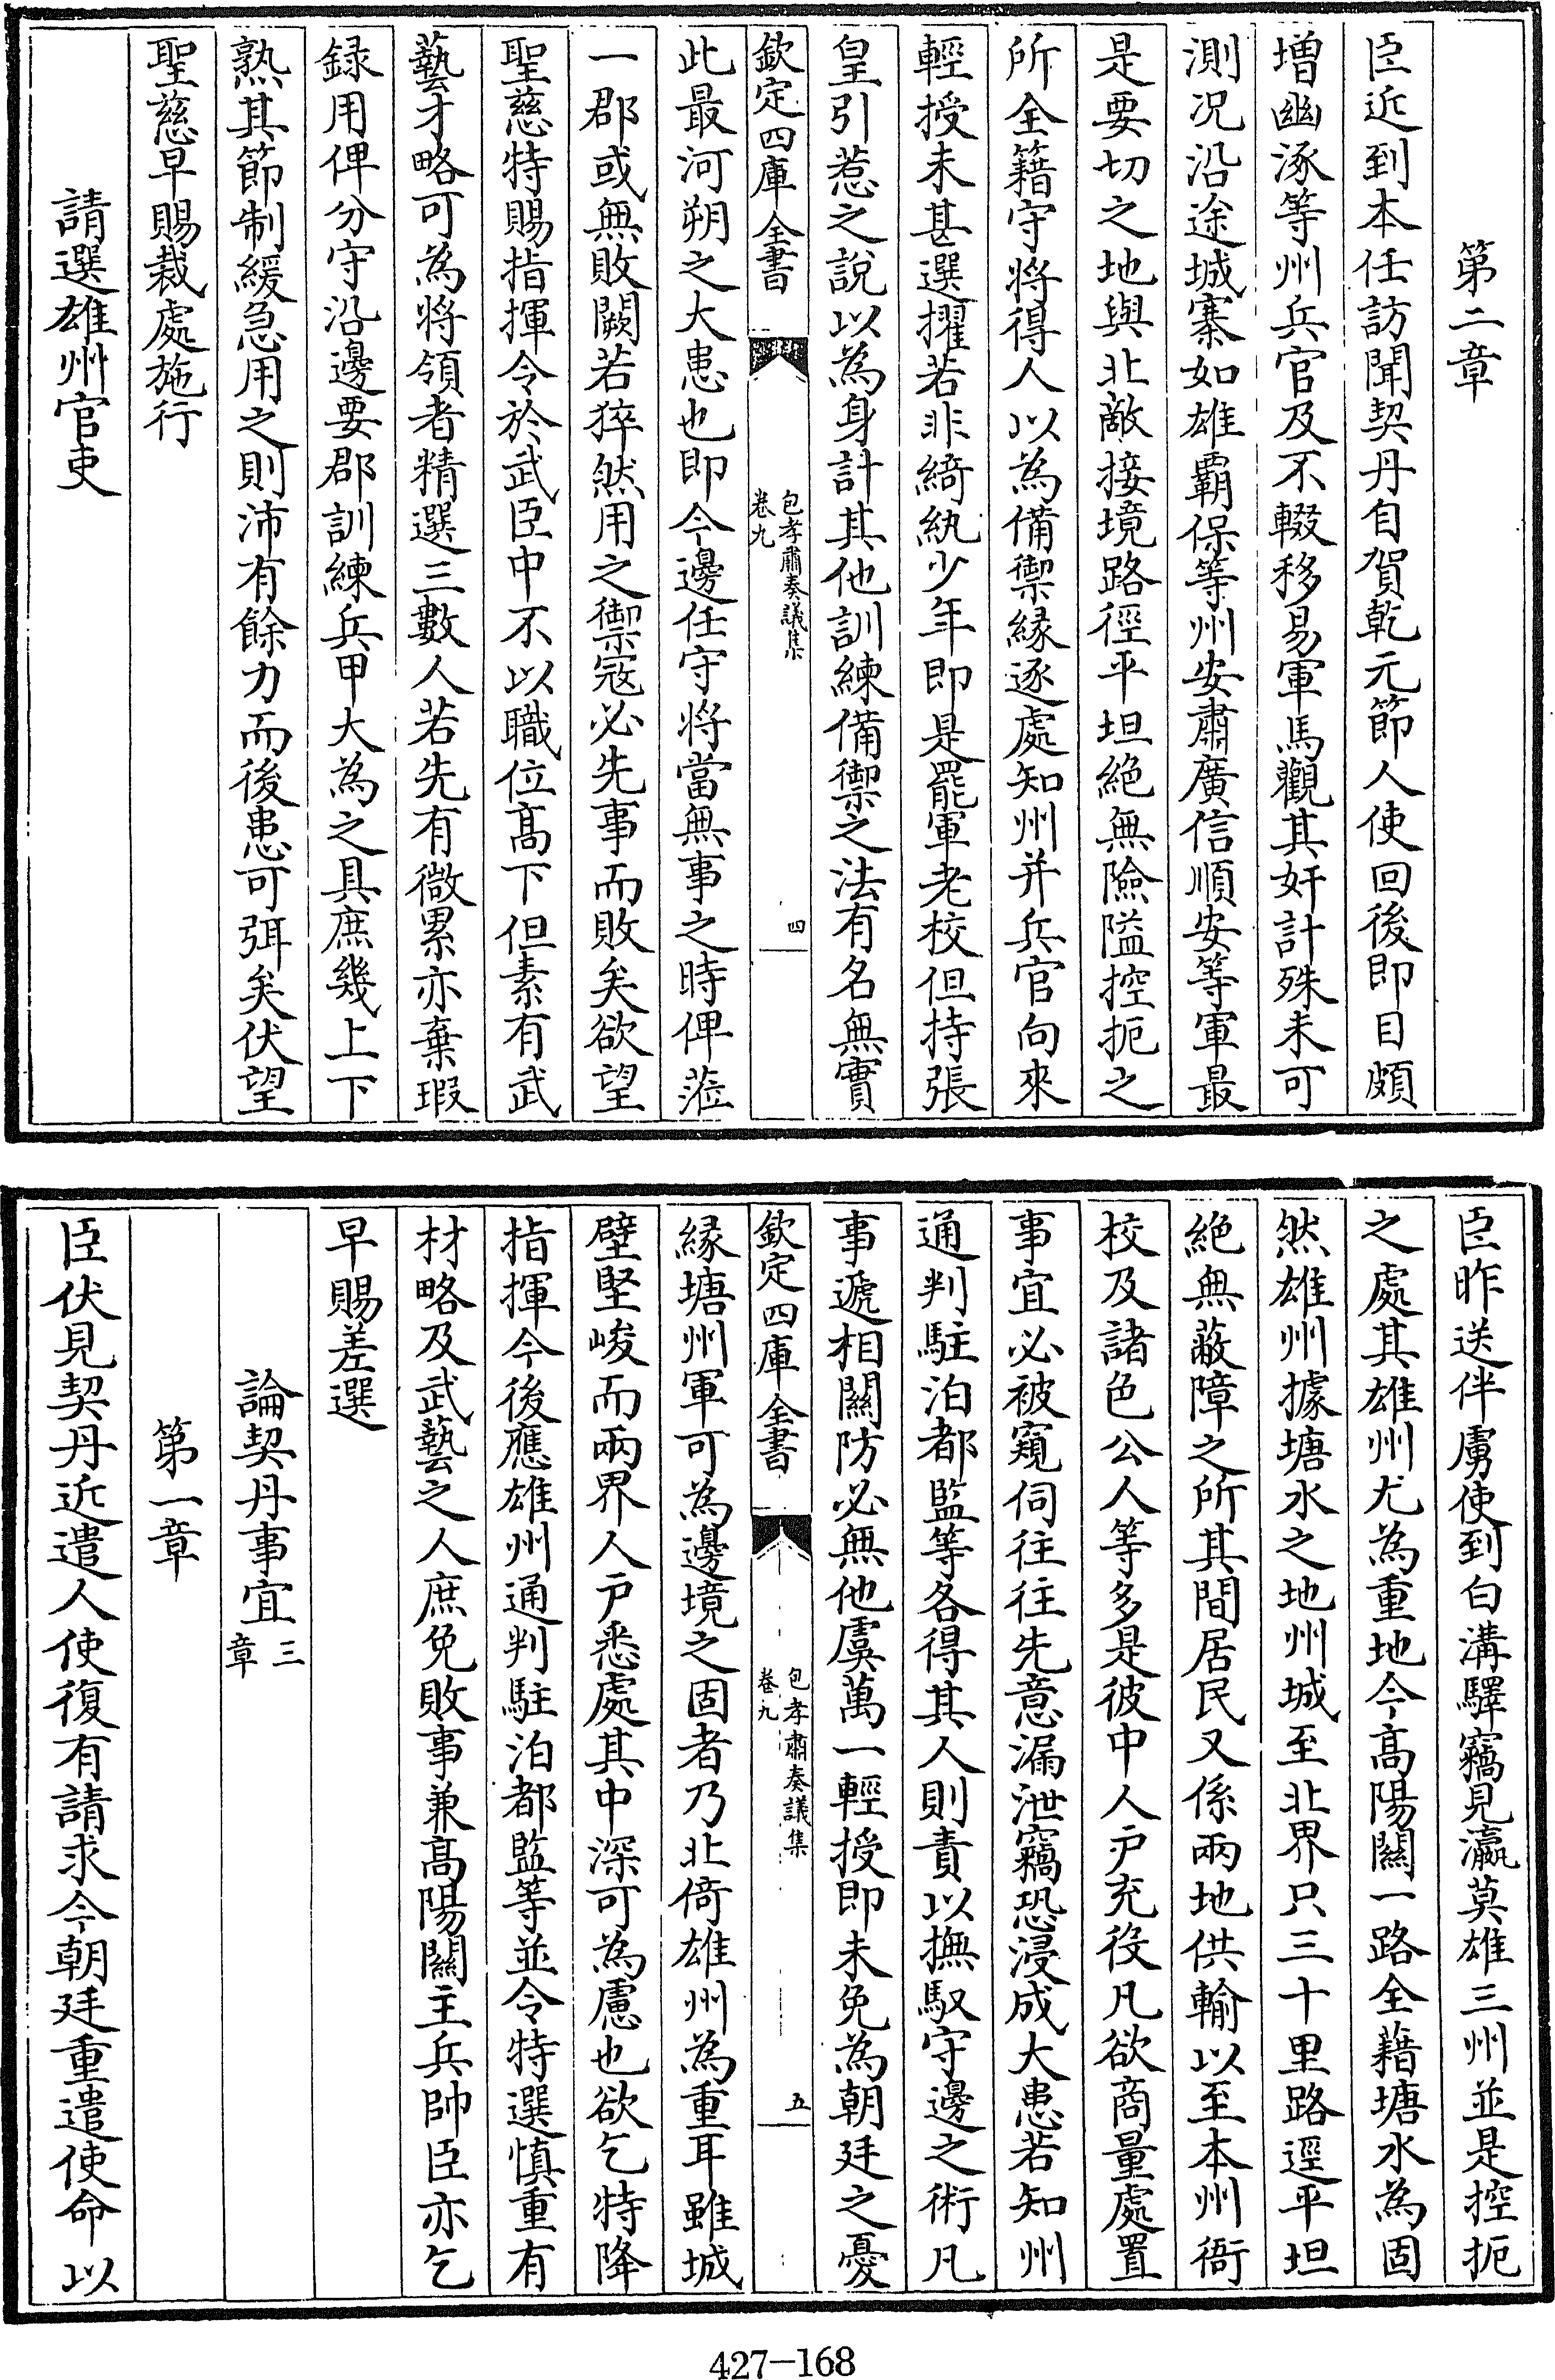 第二章
臣近到本任訪聞契丹自賀乾元節人使回後即目頗
増幽涿等州兵官及不輟移易軍馬觀其奸計殊未可
測况沿途城寨如雄霸保等州安肅廣信順安等軍最
是要切之地與北敵接境路徑平坦絶無險隘控扼之
所全籍守將得人以為備禦縁逐處知州并兵官向來
輕授未甚選擢若非綺紈少年即是罷軍老校但持張
皇引惹之說以為身計其他訓練備禦之法有名無實
欽定四庫全書
包孝肅奏議集
卷九
四
此最河朔之大患也即今邊任守將當無事之時俾蒞
一郡或無敗闕若猝然用之禦宼必先事而敗矣欲望
聖慈特賜指揮令於武臣中不以職位髙下但素有武
藝才略可為將領者精選三數人若先有微累亦棄瑕
録用俾分守沿邊要郡訓練兵甲大為之具庶幾上下
熟其節制緩急用之則沛有餘力而後患可弭矣伏望
聖慈早賜裁處施行
請選雄州官吏
臣昨送伴虜使到白溝驛竊見瀛莫雄三州並是控扼
之處其雄州尤為重地今髙陽關一路全藉塘水為固
然雄州據塘水之地州城至北界只三十里路逕平坦
絶無蔽障之所其間居民又係兩地供輸以至本州衙
校及諸色公人等多是彼中人户充役凡欲商量處置
事宜必被窺伺往往先意漏泄竊恐浸成大患若知州
通判駐泊都監等各得其人則責以撫馭守邊之術凡
事遞相關防必無他虞萬一輕授即未免為朝廷之憂
欽定四庫全書
包孝肅奏議集
卷九
五
縁塘州軍可為邊境之固者乃北倚雄州為重耳雖城
壁堅峻而兩界人户悉處其中深可為慮也欲乞特降
指揮今後應雄州通判駐泊都監等並令特選慎重有
材略及武藝之人庶免敗事兼髙陽關主兵帥臣亦乞
早賜差選
論契丹事宜三章
第一章
臣伏見契丹近遣人使復有請求今朝廷重遣使命以
427-168